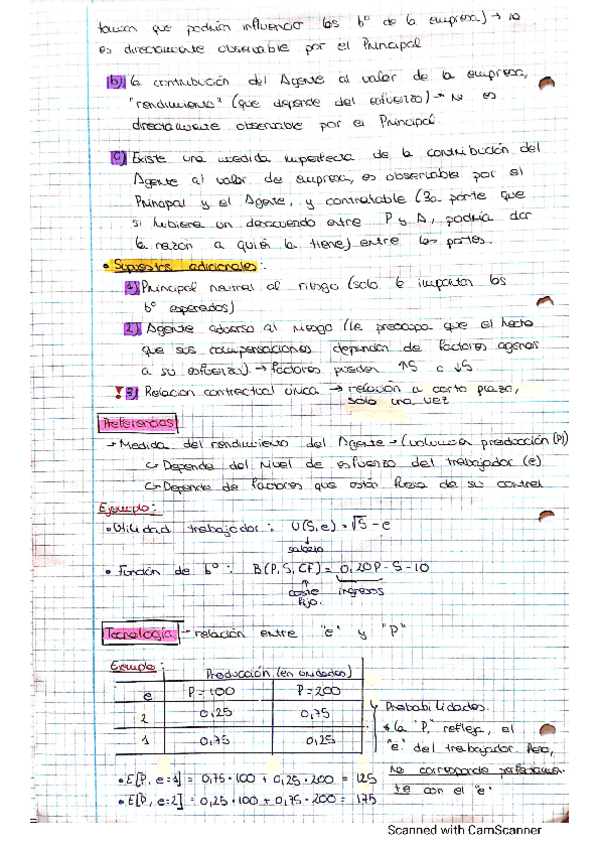 toman que podrían influenciar los bº de la empresa) → no
es directamente observable por el Principal
b) la contribución del Agente al valor de la empresa,
"rendimiento" (que depende del esfuerzo) → No es
directamente observable por el Principal
c) Existe una medida imperfecta de la contribución del
Agente al valor de empresa, es observable por el
Principal y el Agente, y contratable (3a parte que
si hubiera un desacuerdo entre P y A, podría dar
la razón a quién la tiene) entre las partes.
• Supuestos adicionales:
1) Principal neutral al riesgo (solo le importan los
bº esperados)
2) Agente adverso al riesgo (le preocupa que el hecho
que sus compensaciones dependan de factores agenos
a su esfuerzo). → factores pueden ↑S o ↓S
! 3) Relación contractual única → relación a corto plazo,
solo una vez
Preferencias
→ Medida del rendimiento del Agente → (volumen producción (P))
↳ Depende del nivel de esfuerzo del trabajador (e)
↳ Depende de factores que están fuera de su control
Ejemplo:
• Utilidad trabajador: U(S,e) = √S - e
salario
• Función de bº: B(P, S, CF) = 0,20P - S - 10
coste ingresos
fijo.
Tecnología → relación entre "e" y "P"
Ejemplo:
Producción (en unidades)
e P=100 P=200
2 0,25 0,75
1 0,75 0,25
Probabilidades.
* la "P" refleja el
"e" del trabajador. Pero,
no corresponde perfectamen-
te con el "e"
• E[P, e=1] = 0,75·100 + 0,25·200 = 125
• E[P, e=2] = 0,25·100 + 0,75·200 = 175
Scanned with CamScanner